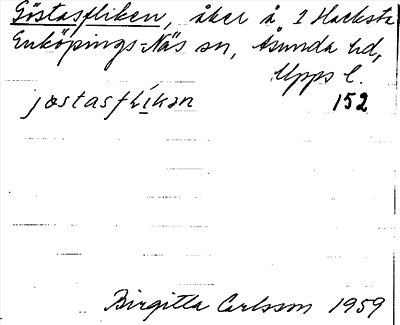 Göstasfliken, åker å 2 Hacksta
Enköpings-Näs sn, Åsunda hd,
Upps l.
jøstasflíkan 152
Birgitta Carlsson 1959